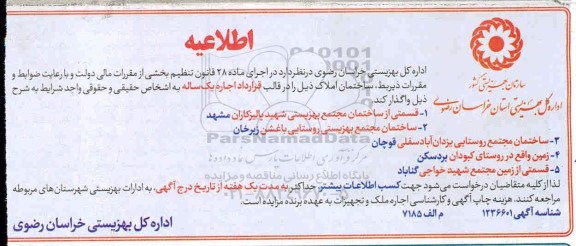 اطلاعیه
سازمان بهزیستی کشور
اداره کل بهزیستی استان خراسان رضوی
اداره کل بهزیستی خراسان رضوی درنظردارد در اجرای ماده ۲۸ قانون تنظیم بخشی از مقررات مالی دولت و با رعایت ضوابط و
مقررات ذیربط، ساختمان املاک ذیل را در قالب قرارداد اجاره یک‌ساله به اشخاص حقیقی و حقوقی واجد شرایط به شرح
ذیل واگذار کند
۱- قسمتی از ساختمان مجتمع بهزیستی شهید پالیزکاران مشهد
۲- ساختمان مجتمع بهزیستی روستایی باغشن زبرخان
۳- ساختمان مجتمع روستایی یزدان‌آبادسفلی قوچان
۴- زمین واقع در روستای کبودان بردسکن
۵- قسمتی از زمین مجتمع شهید خواجی گناباد
لذا از کلیه متقاضیان درخواست می‌شود جهت کسب اطلاعات بیشتر، حداکثر به مدت یک هفته از تاریخ درج آگهی، به ادارات بهزیستی شهرستان‌های مربوطه
مراجعه کنند. هزینه چاپ آگهی و کارشناسی اجاره ملک و تجهیزات به عهده برنده مزایده است.
شناسه آگهی ۱۲۳۶۶۰۱ م الف ۷۱۸۵
اداره کل بهزیستی خراسان رضوی
ParsNamadData
پایگاه اطلاع رسانی مناقصه و مزایده